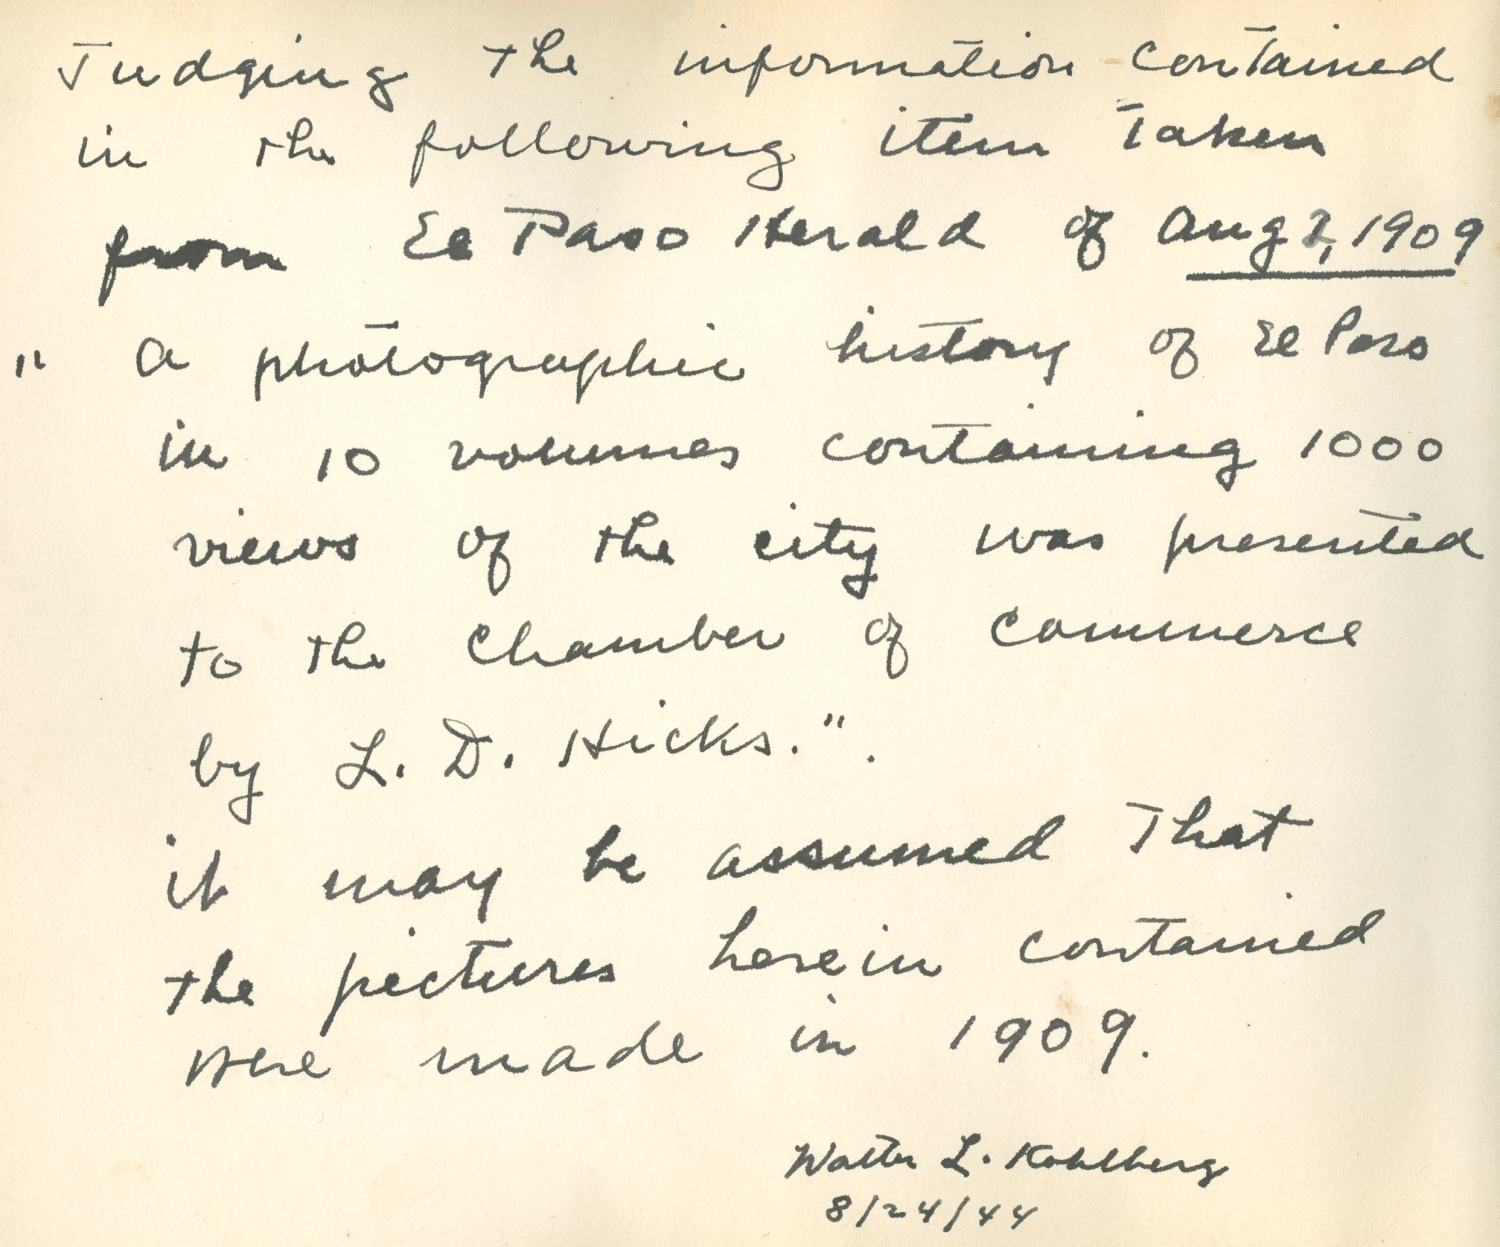 Judging the information contained
in the following item taken
from El Paso Herald of Aug 2, 1909
" a photographic history of El Paso
in 10 volumes containing 1000
views of the city was presented
to the Chamber of Commerce
by L. D. Hicks.".
it may be assumed that
the pictures herein contained
were made in 1909.
Walter L. Kohlberg
8/24/44